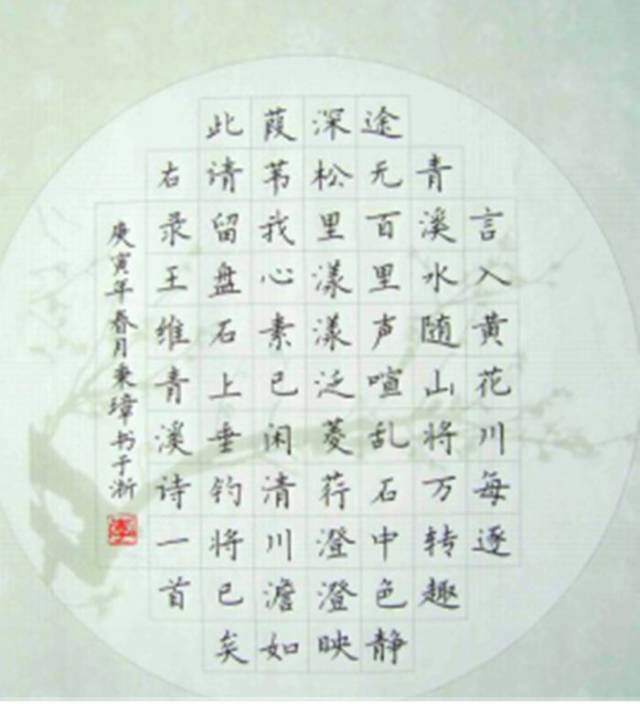 言入黄花川每逐
青溪水随山将万转趣
途无百里声喧乱石中色静
深松里漾漾泛菱荇澄澄映
葭苇我心素已闲清川澹如
此请留盘石上垂钓将已矣
右录王维青溪诗一首
庚寅年春月秉璋书于浙